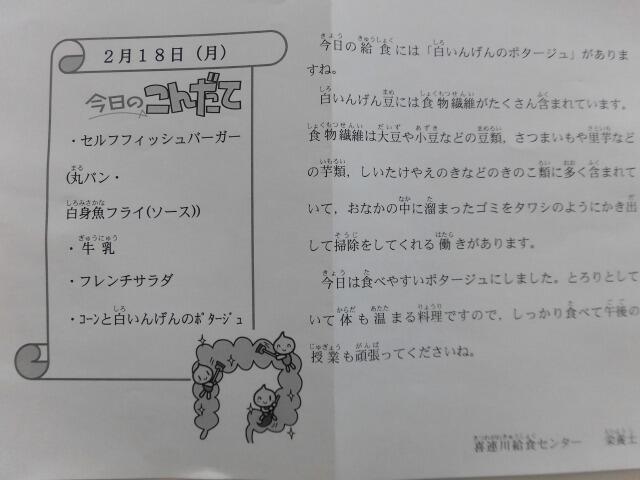 2月18日（月）
今日のこんだて
・セルフフィッシュバーガー
(丸パン・
白身魚フライ(ソース))
・牛乳
・フレンチサラダ
・ｺｰﾝと白いんげんのﾎﾟﾀｰｼﾞｭ
今日の給食には「白いんげんのポタージュ」がありま
すね。
白いんげん豆には食物繊維がたくさん含まれています。
食物繊維は大豆や小豆などの豆類，さつまいもや里芋など
の芋類，しいたけやえのきなどのきのこ類に多く含まれて
いて，おなかの中に溜まったゴミをタワシのようにかき出
して掃除をしてくれる働きがあります。
今日は食べやすいポタージュにしました。とろりとして
いて体も温まる料理ですので，しっかり食べて午後の
授業も頑張ってくださいね。
喜連川給食センター　栄養士